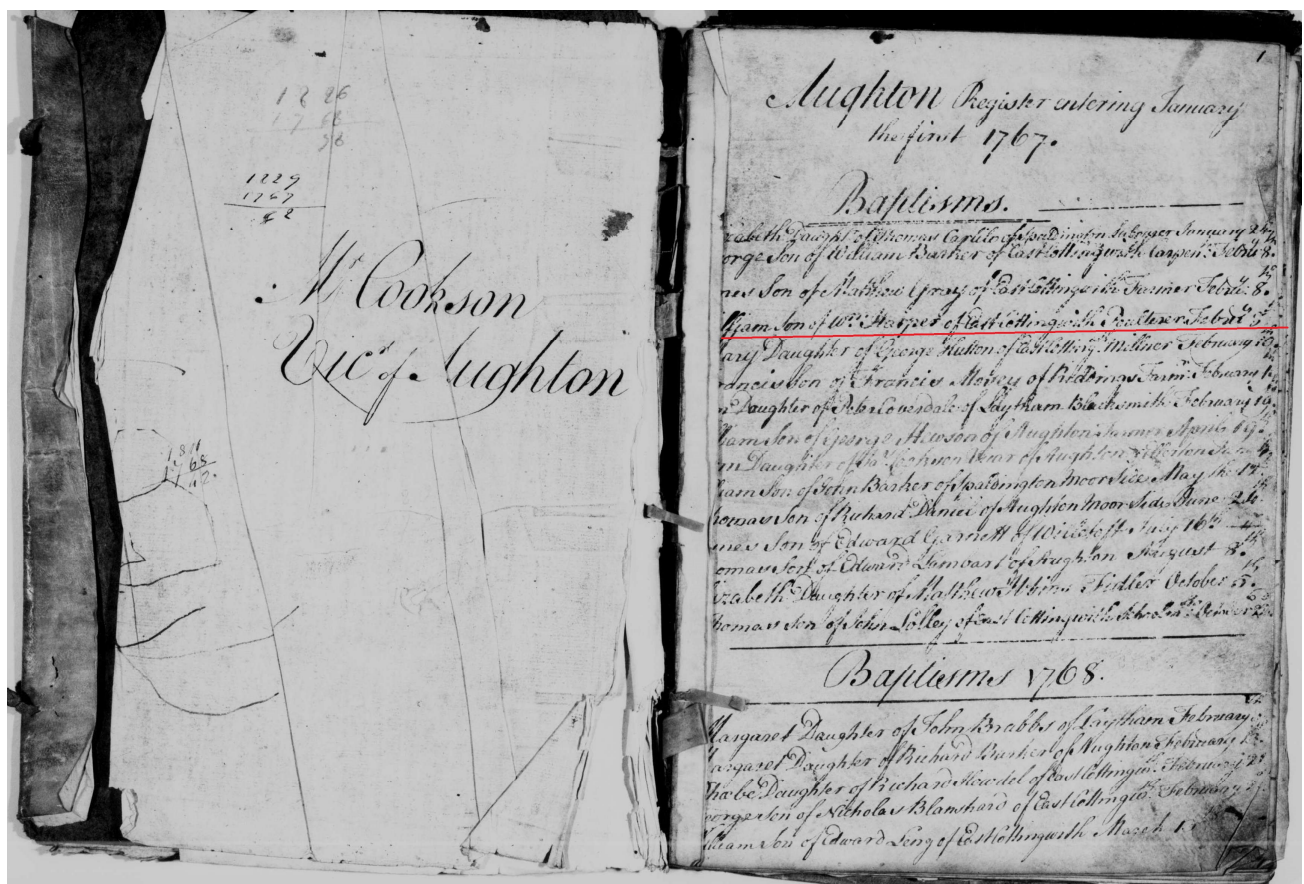 1226
1768
58
1829
1767
62
Mr Cookson
Vicr of Aughton
1811
1768
1
Aughton Register entering January
the first 1767.
Baptisms.
zabeth Daughtr of Thomas of Spaldington Labourer January 24
orge Son of William Barker of East Cottingwith Carpenr Febry 8
mes Son of Matthew Gray of East Cottingwith Farmer Febry 8th
lliam Son of Wm Harper of East Cottingwith Poulterer Febry
ary Daughter of George Hutton of East Cottingth Millner February 10
rancis Son of Francis Morey of Riddings Farmr February
n Daughter of Peter Loverdale of Laytham Blacksmith February 19
liam Son of George Hewson of Aughton Farmer April 19
nn Daughter of Cookson Vicar of Aughton
liam Son of John Barker of Spaldington Moor Side May the 17th
homas Son of Richard Daniel of Aughton Moor Side June 24
mes Son of Edward Garnett of July 16th
omas Son of Edward of Aughton August 8th
izabeth Daughter of Matthew Fidler October 5th
homas Son of John Lolley of East Cottingwith October
Baptisms 1768.
Margaret Daughter of John Brabbs of Laytham February
Margaret Daughter of Richard Barker of Aughton February
Phœbe Daughter of Richard Howdel of East Cottingwh February
eorge Son of Nicholas Blanshard of East Cottingwh February
lliam Son of Edward Leng of East Cottingwith March 1